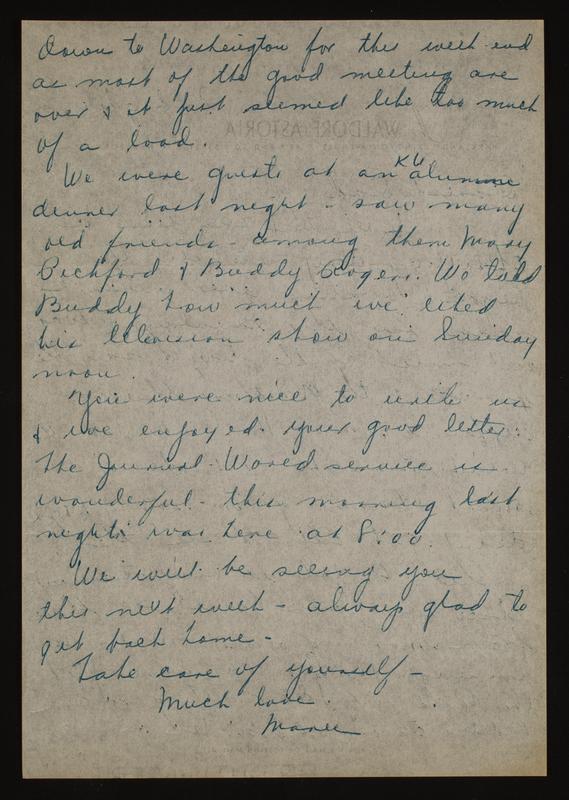 down to Washington for this week end
as most of the good meeting are
over & it just seemed like too much
of a load.
We were guests at an KU alumni
dinner last night - saw many
old friends - among them Mary
Pickford & Buddy Rogers. We told
Buddy how much we liked
his television show on Sunday
noon.
You were nice to write us
& we enjoyed your good letter.
The Journal World service is
wonderful - this morning last
nights was here at 8:00.
We will be seeing you
this next week - always glad to
get back home -
Take care of yourself -
Much love
WALDORF-ASTORIA